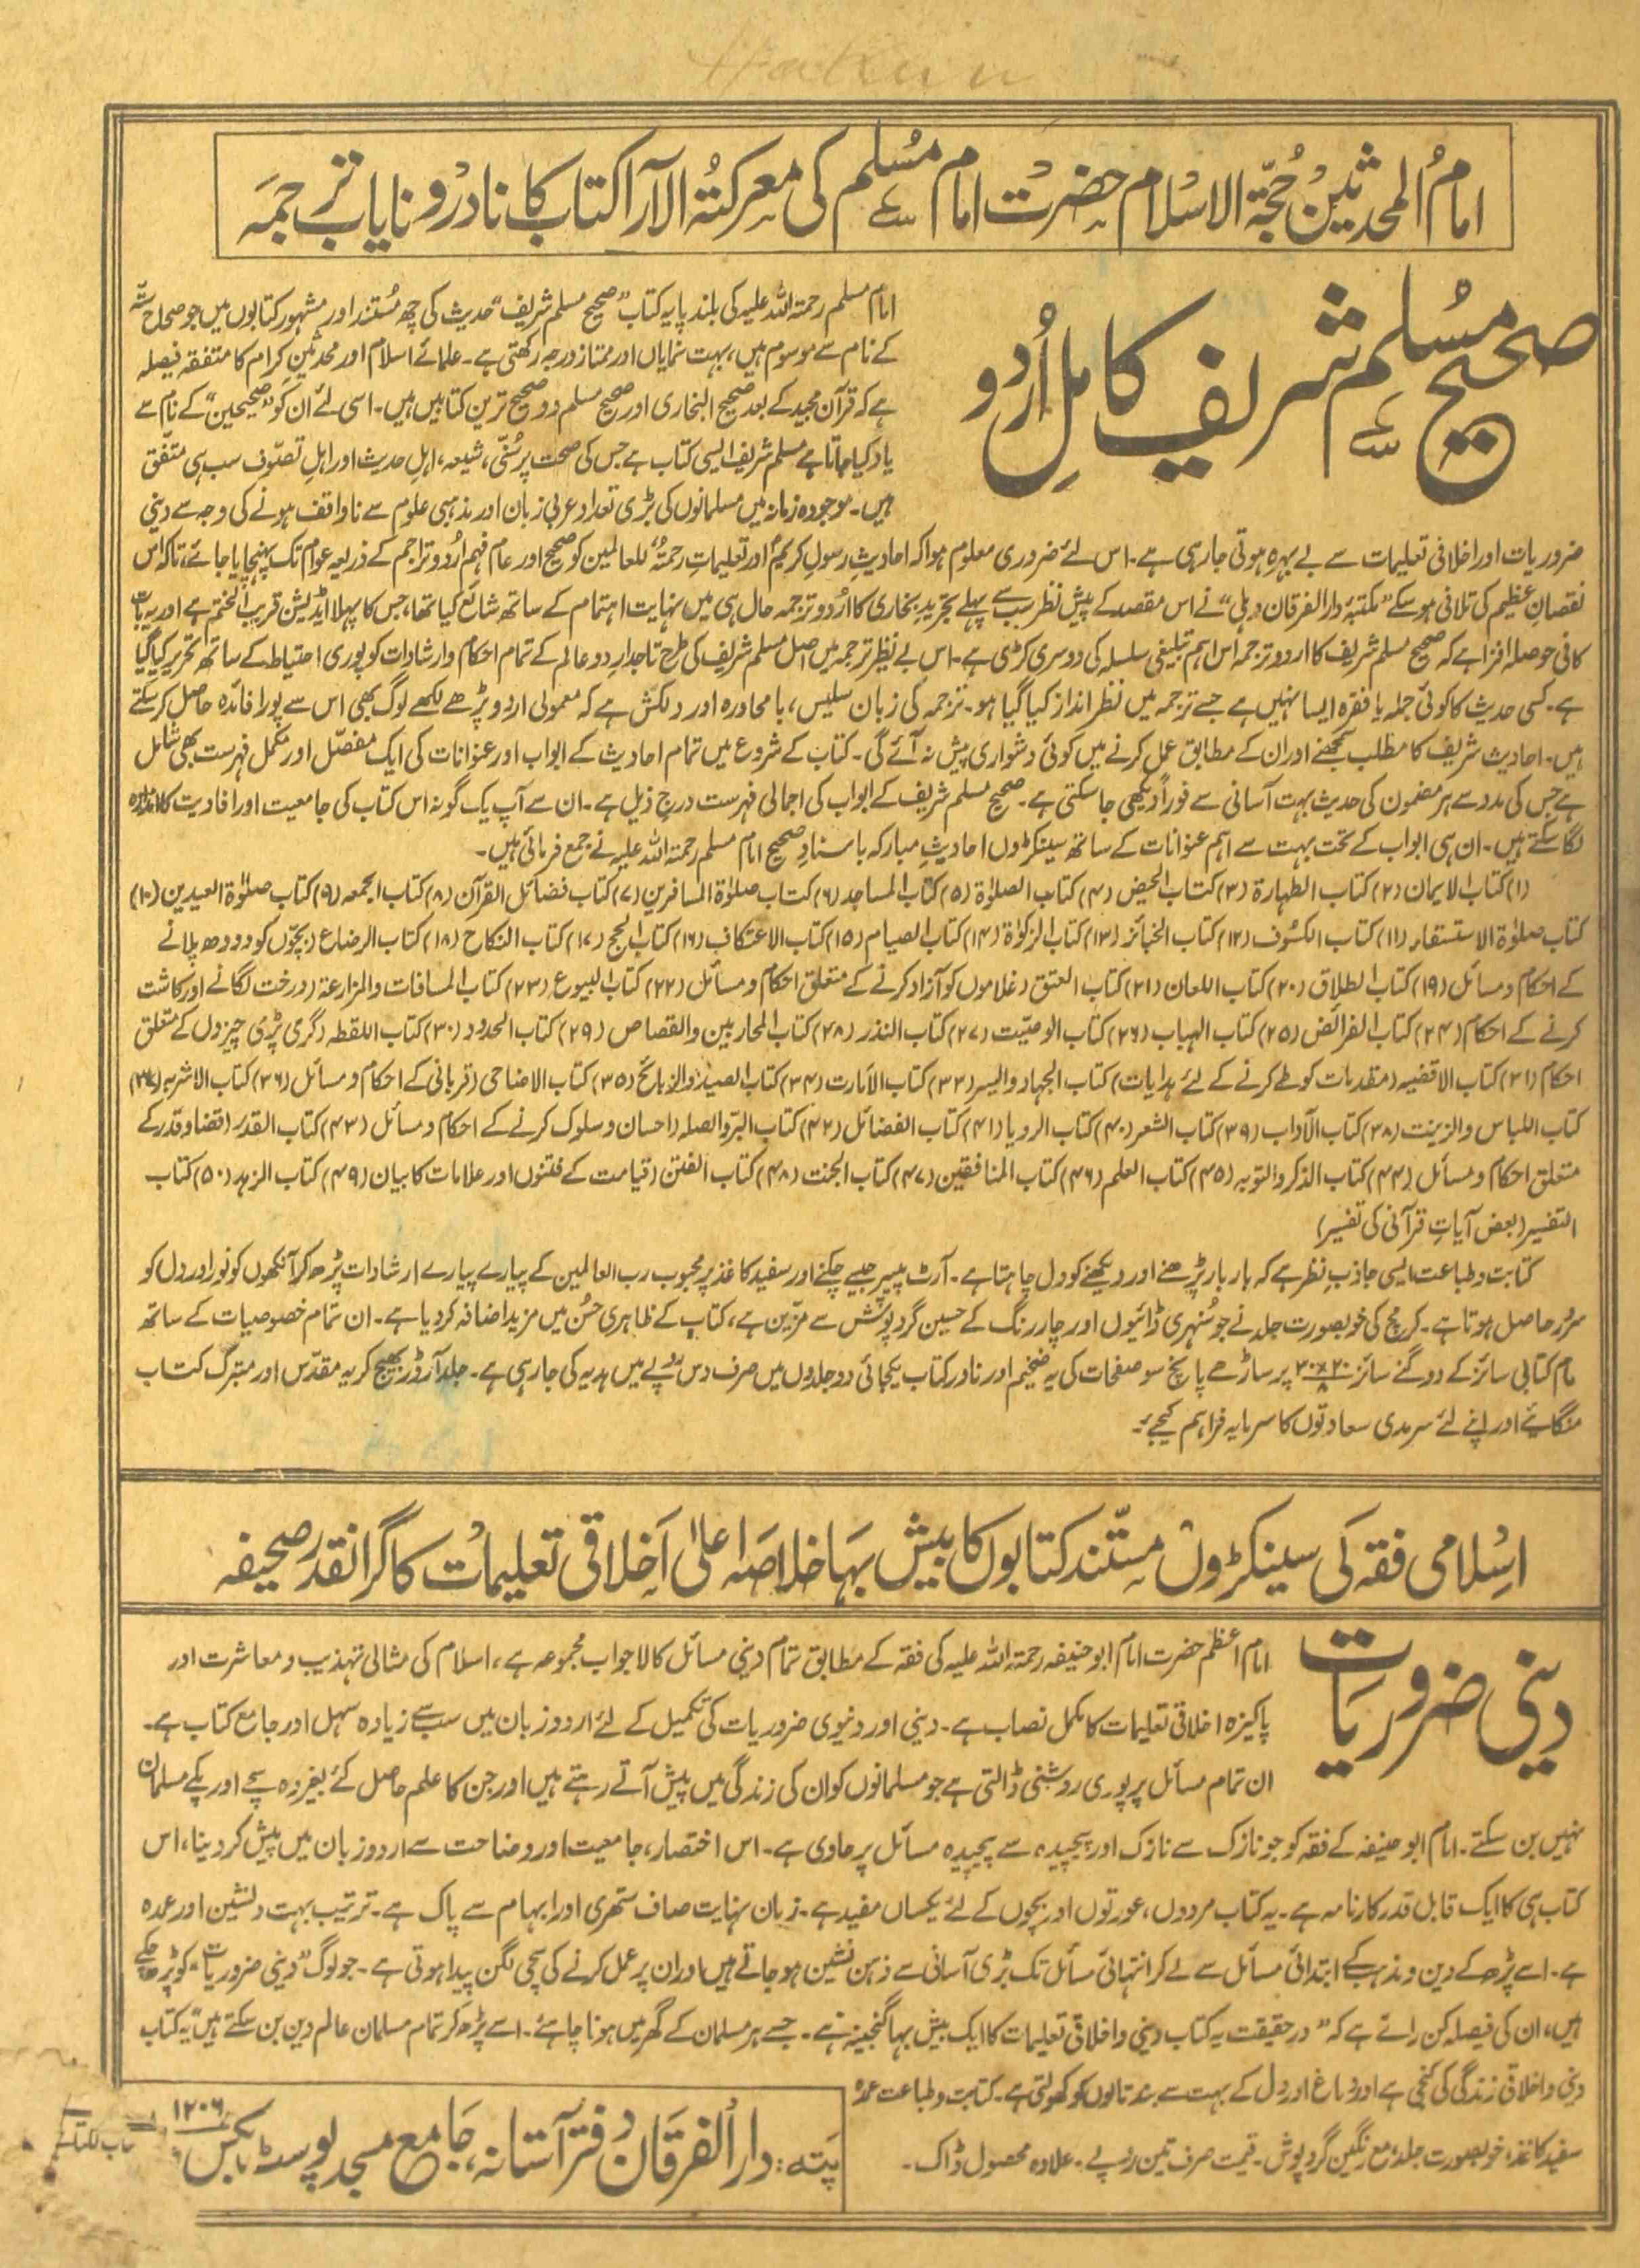 امامُ المحدثین حُجّۃ الاسلام حضرت امام مُسلم کی معرکتُہ الآرا کتاب کا نادر و نایاب ترجمہ
صحیح مُسلم شریف کامل اُردو
امام مسلم رحمتہ اللہ علیہ کی بلند پایہ کتاب ”صحیح مسلم شریف“ حدیث کی چھ مُستند اور مشہور کتابوں میں جو صحاح ستّہ
کے نام سے موسوم ہیں، بہت نمایاں اور ممتاز درجہ رکھتی ہے۔ علمائے اسلام اور محدثین کرام کا متفقہ فیصلہ
ہے کہ قرآن مجید کے بعد صحیح البخاری اور صحیح مسلم دو صحیح ترین کتابیں ہیں۔ اسی لئے ان کو ”صحیحین“ کے نام سے
یاد کیا جاتا ہے مسلم شریف ایسی کتاب ہے جس کی صحت پر سُنّی، شیعہ، اہلِ حدیث اور اہلِ تصوّف سب ہی متّفق
ہیں۔ موجودہ زمانہ میں مسلمانوں کی بڑی تعداد عربی زبان اور مذہبی علوم سے ناواقف ہونے کی وجہ سے دینی
ضروریات اور اخلاقی تعلیمات سے بے بہرہ ہوتی جا رہی ہے۔ اس لئے ضروری معلوم ہوا کہ احادیثِ رسولِ کریمؐ اور تعلیماتِ رحمتہٌ للعالمین کو صحیح اور عام فہم اُردو تراجم کے ذریعہ عوام تک پہنچایا جائے، تاکہ اس
نقصانِ عظیم کی تلافی ہو سکے ”مکتبۂ دار الفرقان دہلی“ نے اس مقصد کے پیش نظر سب سے پہلے تجرید بخاری کا اُردو ترجمہ حال ہی میں نہایت اہتمام کے ساتھ شائع کیا تھا، جس کا پہلا ایڈیشن قریب الختم ہے اور یہ بات
کافی حوصلہ افزا ہے کہ صحیح مسلم شریف کا اردو ترجمہ اس اہم تبلیغی سلسلہ کی دوسری کڑی ہے۔ اس بے نظیر ترجمہ میں اصل مسلم شریف کی طرح تاجدارِ دو عالم کے تمام احکام و ارشادات کو پوری احتیاط کے ساتھ تحریر کیا گیا
ہے۔ کسی حدیث کا کوئی جملہ یا فقرہ ایسا نہیں ہے جسے ترجمہ میں نظر انداز کیا گیا ہو۔ ترجمہ کی زبان سلیس، بامحاورہ اور دلکش ہے کہ معمولی اردو پڑھے لکھے لوگ بھی اس سے پورا فائدہ حاصل کر سکتے
ہیں۔ احادیث شریف کا مطلب سمجھنے اور ان کے مطابق عمل کرنے میں کوئی دشواری پیش نہ آئے گی۔ کتاب کے شروع میں تمام احادیث کے ابواب اور عنوانات کی ایک مفصّل اور مکمل فہرست بھی شامل
ہے جس کی مدد سے ہر مضمون کی حدیث بہت آسانی سے فوراً دیکھی جا سکتی ہے۔ صحیح مسلم شریف کے ابواب کی اجمالی فہرست درج ذیل ہے۔ ان سے آپ یک گونہ اس کتاب کی جامعیت اور افادیت کا اندازہ
لگا سکتے ہیں۔ ان ہی ابواب کے تحت بہت سے اہم عنوانات کے ساتھ سینکڑوں احادیثِ مبارکہ باسنادِ صحیح امام مسلم رحمتہ اللہ علیہ نے جمع فرمائی ہیں۔
(۱) کتاب الایمان (۲) کتاب الطہارۃ (۳) کتاب الحیض (۴) کتاب الصلوٰۃ (۵) کتاب المساجد (۶) کتاب صلوٰۃ المسافرین (۷) کتاب فضائل القرآن (۸) کتاب الجمعہ (۹) کتاب صلوٰۃ العیدین (۱۰)
کتاب صلوٰۃ الاستسقاء (۱۱) کتاب الکسوف (۱۲) کتاب الجنائز (۱۳) کتاب الزکوٰۃ (۱۴) کتاب الصیام (۱۵) کتاب الاعتکاف (۱۶) کتاب الحج (۱۷) کتاب النکاح (۱۸) کتاب الرضاع (بچّوں کو دودھ پلانے
کے احکام و مسائل (۱۹) کتاب الطلاق (۲۰) کتاب اللعان (۲۱) کتاب العتق (غلاموں کو آزاد کرنے کے متعلق احکام و مسائل (۲۲) کتاب البیوع (۲۳) کتاب المساقات والمزارعۃ (درخت لگانے اور کاشت
کرنے کے احکام (۲۴) کتاب الفرائض (۲۵) کتاب الہبات (۲۶) کتاب الوصیّت (۲۷) کتاب النذر (۲۸) کتاب المحاربین والقصاص (۲۹) کتاب الحدود (۳۰) کتاب اللقطہ (گری پڑی چیزوں کے متعلق
احکام (۳۱) کتاب الاقضیہ (مقدمات کو طے کرنے کے لئے ہدایات) کتاب الجہاد والسیر (۳۳) کتاب الامارت (۳۴) کتاب الصید والذبائح (۳۵) کتاب الاضاحی (قربانی کے احکام و مسائل (۳۶) کتاب الاشربہ (۳۷)
کتاب اللباس والزینت (۳۸) کتاب الآداب (۳۹) کتاب الشعر (۴۰) کتاب الرویا (۴۱) کتاب الفضائل (۴۲) کتاب البرّ والصلہ (احسان و سلوک کرنے کے احکام و مسائل (۴۳) کتاب القدر (قضا و قدر کے
متعلق احکام و مسائل (۴۴) کتاب الذکر والتوبہ (۴۵) کتاب العلم (۴۶) کتاب المنافقین (۴۷) کتاب الجنت (۴۸) کتاب الفتن (قیامت کے فتنوں اور علامات کا بیان (۴۹) کتاب الزہد (۵۰) کتاب
التفسیر (بعض آیاتِ قرآنی کی تفسیر)
کتابت و طباعت ایسی جاذبِ نظر ہے کہ بار بار پڑھنے اور دیکھنے کو دل چاہتا ہے۔ آرٹ پیپر جیسے چکنے اور سفید کاغذ پر محبوب رب العالمین کے پیارے پیارے ارشادات پڑھ کر آنکھوں کو نور اور دل کو
سرُور حاصل ہوتا ہے۔ کرمچ کی خوبصورت جلد نے جو سُنہری ڈائیوں اور چار رنگ کے حسین گرد پوش سے مزّین ہے، کتاب کے ظاہری حُسن میں مزید اضافہ کر دیا ہے۔ ان تمام خصوصیات کے ساتھ
عام کتابی سائز کے دوگنے سائز ۲۰×۳۰/۸ پر ساڑھے پانچ سو صفحات کی یہ ضخیم اور نادر کتاب یکجائی دو جلدوں میں صرف دس روپے میں ہدیہ کی جا رہی ہے۔ جلد آرڈر بھیج کر یہ مقدّس اور متبرک کتاب
منگائیے اور اپنے لئے سرمدی سعادتوں کا سرمایہ فراہم کیجیے۔
اسلامی فقہ کی سینکڑوں مستند کتابوں کا بیش بہا خلاصہ اعلیٰ اخلاقی تعلیمات کا گرانقدر صحیفہ
دینی ضروریات
امام اعظم حضرت امام ابوحنیفہ رحمتہ اللہ علیہ کی فقہ کے مطابق تمام دینی مسائل کا لاجواب مجموعہ ہے، اسلام کی مثالی تہذیب و معاشرت اور
پاکیزہ اخلاقی تعلیمات کا مکمل نصاب ہے۔ دینی اور دنیوی ضروریات کی تکمیل کے لئے اردو زبان میں سب سے زیادہ سہل اور جامع کتاب ہے۔
ان تمام مسائل پر پوری روشنی ڈالتی ہے جو مسلمانوں کو ان کی زندگی میں پیش آتے رہتے ہیں اور جن کا علم حاصل کئے بغیر وہ سچے اور پکے مسلمان
نہیں بن سکتے۔ امام ابوحنیفہ کے فقہ کو جو نازک سے نازک اور پیچیدہ سے پیچیدہ مسائل پر حاوی ہے۔ اس اختصار، جامعیت اور وضاحت سے اردو زبان میں پیش کر دینا، اس
کتاب ہی کا ایک قابل قدر کارنامہ ہے۔ یہ کتاب مردوں، عورتوں اور بچوں کے لئے یکساں مفید ہے۔ زبان نہایت صاف ستھری اور ابہام سے پاک ہے۔ ترتیب بہت دلنشین اور عمدہ
ہے۔ اسے پڑھ کے دین و مذہب کے ابتدائی مسائل سے لے کر انتہائی مسائل تک بڑی آسانی سے ذہن نشین ہو جاتے ہیں اور ان پر عمل کرنے کی سچی لگن پیدا ہوتی ہے۔ جو لوگ ”دینی ضروریات“ کو پڑھ چکے
ہیں، ان کی فیصلہ کن رائے ہے کہ ”درحقیقت یہ کتاب دینی و اخلاقی تعلیمات کا ایک بیش بہا گنجینہ ہے۔ جسے ہر مسلمان کے گھر میں ہونا چاہئے۔ اسے پڑھ کر تمام مسلمان عالم دین بن سکتے ہیں“ یہ کتاب
دینی و اخلاقی زندگی کی کنجی ہے اور دماغ اور دل کے بہت سے بند تالوں کو کھولتی ہے۔ کتابت و طباعت عمدہ
سفید کاغذ، خوبصورت جلد، مع رنگین گرد پوش۔ قیمت صرف تین روپے۔ علاوہ محصول ڈاک۔
پتہ: دار الفرقان دفتر آستانہ، جامع مسجد پوسٹ بکس ۱۲۰۶